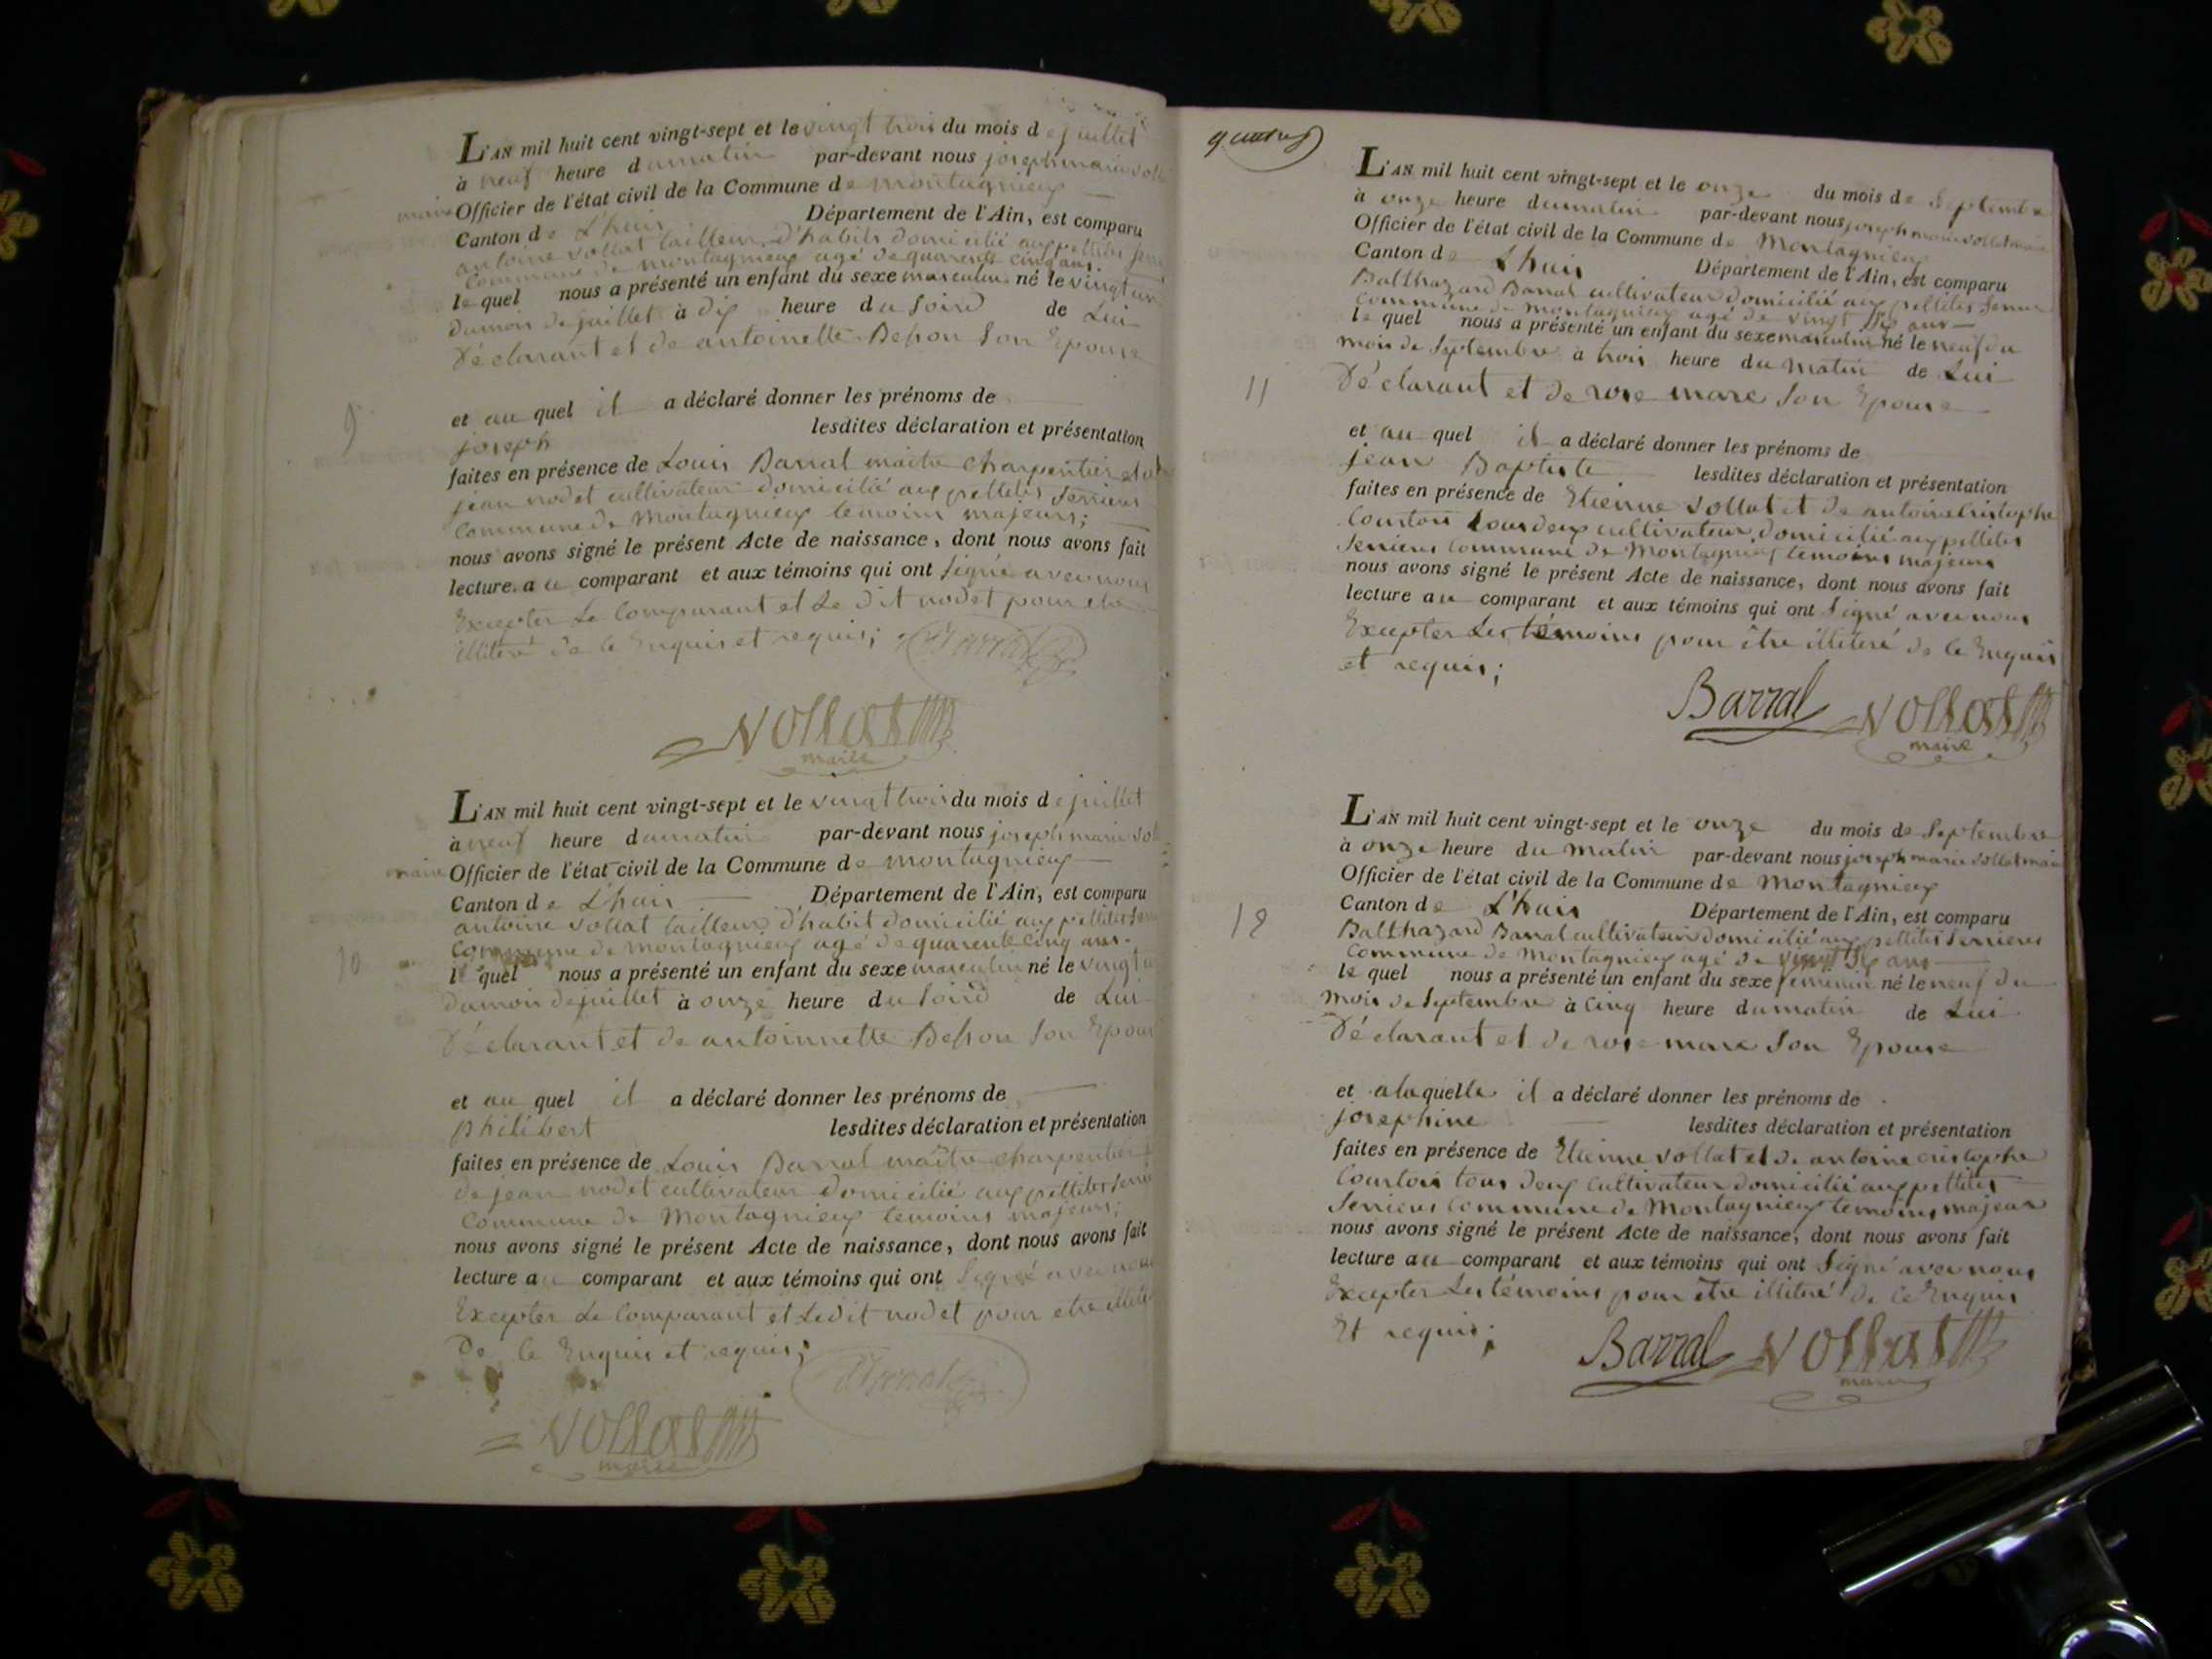 L'AN mil huit cent vingt-sept et le vingt trois du mois de juillet
à neuf heure du matin par-devant nous joseph marie voll
maire Officier de l'état civil de la Commune de montagnieux
Canton de L'huis Département de l'Ain, est comparu
antoine vollat tailleur d'habits domicilié aux pettites
Commune de montagnieux agé de quarente cinq ans.
le quel nous a présenté un enfant du sexe masculin né le vingt un
du mois de juillet à dix heure du soird de Lui
Déclarant et de antoinette Besson son Epouse
9
et au quel il a déclaré donner les prénoms de
joseph lesdites déclaration et présentation
faites en présence de Louis Barral maitre charpentier et de
jean nodet cultivateur domicilié aux pettites serrieres
Commune de Montagnieux temoins majeurs;
nous avons signé le présent Acte de naissance, dont nous avons fait
lecture. au comparant et aux témoins qui ont signé avec nous
Excepter Le Comparant et Le dit nodet pour etre
illiteré de ce Enquis et requis; Barral
Vollat
maire
L'AN mil huit cent vingt-sept et le vingt trois du mois de juillet
à neuf heure du matin par-devant nous joseph marie vol
maire Officier de l'état civil de la Commune de montagnieux
Canton de L'huis Département de l'Ain, est comparu
antoine vollat tailleur d'habit domicilié aux pettites
Commune de montagnieux agé de quarente cinq ans.
10
le quel nous a présenté un enfant du sexe masculin né le vingt u
du mois de juillet à onze heure du soird de Lui
Déclarant et de antoinnette Besson son Epous
et au quel il a déclaré donner les prénoms de
philibert lesdites déclaration et présentation
faites en présence de Louis Barral maître charpentier
de jean nodet cultivateur domicilié aux pettites serri
Commune de Montagnieux temoins majeurs;
nous avons signé le présent Acte de naissance, dont nous avons fait
lecture au comparant et aux témoins qui ont signé avec nous
Excepter Le Comparant et Ledit nodet pour etre illite
De ce Enquis et requis;
Barral
Vollat
maire
quatre
L'AN mil huit cent vingt-sept et le onze du mois de Septembre
à onze heure du matin par-devant nous joseph marie vollat maire
Officier de l'état civil de la Commune de Montagnieux
Canton de L'huis Département de l'Ain, est comparu
Balthazard Barral cultivateur domicilié aux pettites serrier
Commune de Montagnieux agé de vingt six ans
le quel nous a présenté un enfant du sexe masculin né le neuf du
mois de Septembre à trois heure du matin de Lui
11
Déclarant et de rose mare son Epouse
et au quel il a déclaré donner les prénoms de
jean Baptiste lesdites déclaration et présentation
faites en présence de Etienne vollat et de antoine cristophe
Courtois tous deux cultivateur domicilié aux pettites
serrieres Commune de Montagnieux temoins majeurs
nous avons signé le présent Acte de naissance, dont nous avons fait
lecture au comparant et aux témoins qui ont signé avec nous
Excepter Les témoins pour être illiteré de ce Enquis
et requis;
Barral Vollat
maire
L'AN mil huit cent vingt-sept et le onze du mois de Septembre
à onze heure du matin par-devant nous joseph marie vollat maire
Officier de l'état civil de la Commune de Montagnieux
Canton de L'huis Département de l'Ain, est comparu
12
Balthazard Barral cultivateur domicilié aux pettites serrieres
Commune de Montagnieux agé de vingt six ans
le quel nous a présenté un enfant du sexe feminin né le neuf du
mois de Septembre à cinq heure du matin de Lui
Déclarant et de rose mare son Epouse
et alaquelle il a déclaré donner les prénoms de
josephine lesdites déclaration et présentation
faites en présence de Etienne vollat et de antoine cristophe
Courtois tous deux cultivateur domicilié aux pettites
serrieres Commune de Montagnieux temoins majeur
nous avons signé le présent Acte de naissance, dont nous avons fait
lecture au comparant et aux témoins qui ont signé avec nous
Excepter Les témoins pour être illiteré de ce Enquis
Et requis;
Barral Vollat
maire